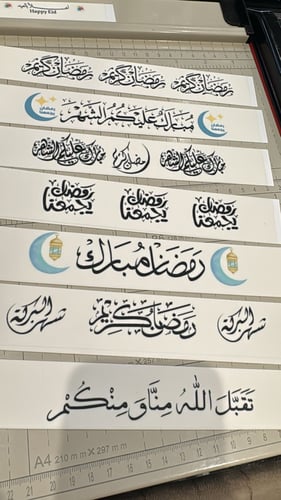 Happy Eid
رمضان كريم رمضان كريم رمضان كريم
مبارك عليكم الشهر
مبارك عليكم الشهر رمضان كريم مبارك عليكم الشهر
رمضان يجمعنا رمضان يجمعنا رمضان يجمعنا
رمضان مبارك
شهر البركة رمضان كريم شهر البركة
تَقَبَّلَ اللَّه مِنَّا وَمِنْكُمْ
A4 210 mm x 297 mm